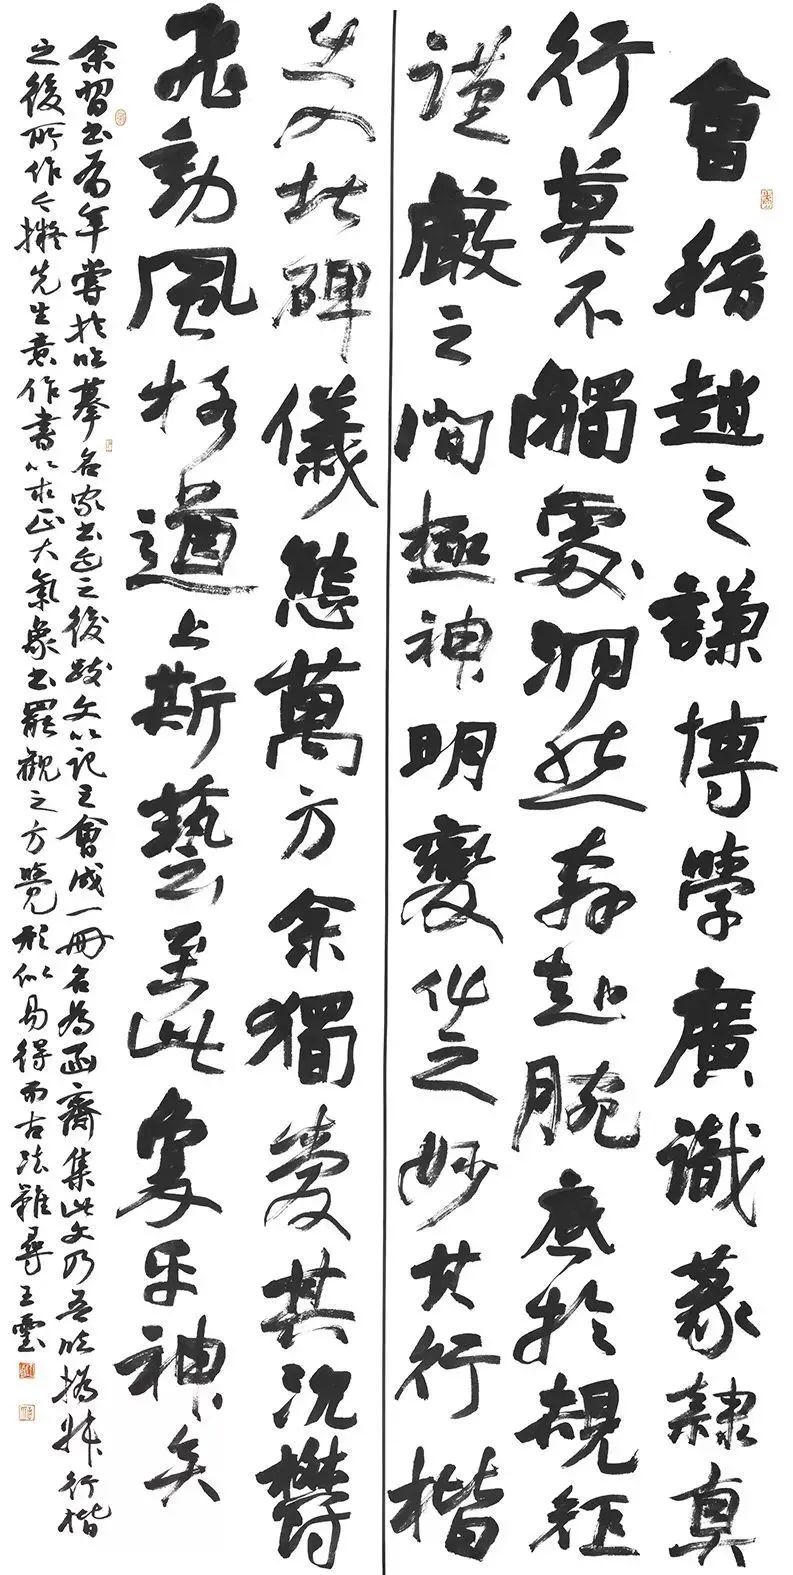 會稽趙之謙博學廣識篆隸真
行莫不觸處洞然奔赴腕底於規矩
謹嚴之間極神明變化之妙其行楷
出入北碑儀態萬方余獨愛其沉鬱
飛動風格遒上斯藝至此象乎神矣
余習書有年嘗於臨摹名家書迹之後跋文以記之會成一冊名為函齋集此文乃吾臨撝叔行楷
之後所作今擬先生意作書以求正大氣象書罷觀之方覺形似易得而古法難尋王雲